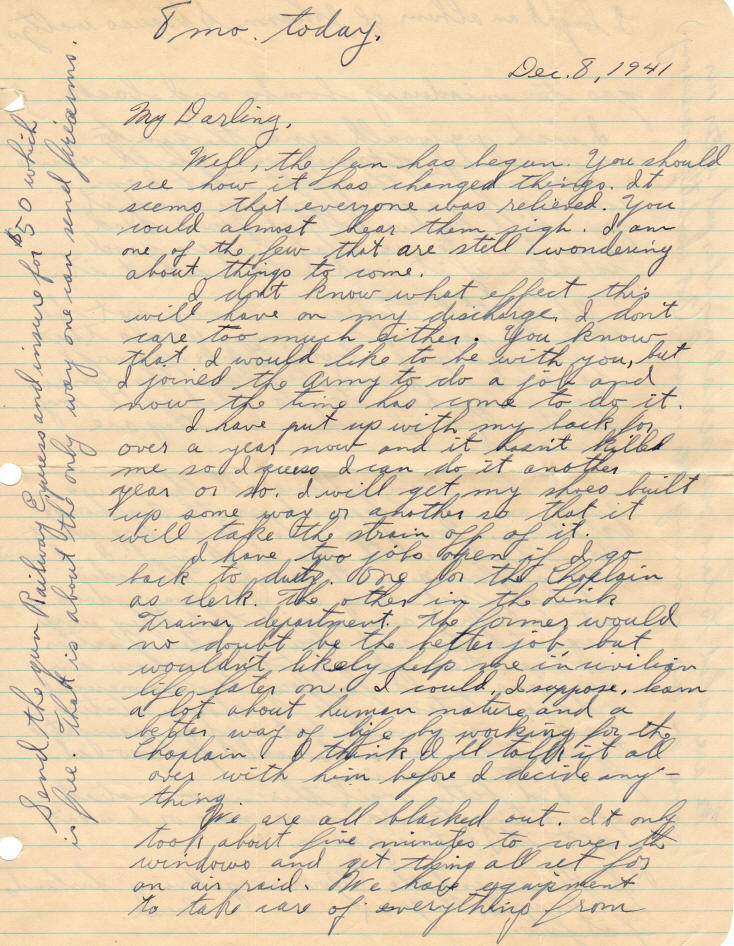 8 mo. today.
Dec. 8, 1941
My Darling,
Well, the fun has begun. You should
see how it has changed things. It
seems that everyone was relieved. You
could almost hear them sigh. I am
one of the few that are still wondering
about things to come.
I don't know what effect this
will have on my discharge. I don't
care too much either. You know
that I would like to be with you, but
I joined the army to do a job and
now the time has come to do it.
I have put up with my back for
over a year now and it hasn't killed
me so I guess I can do it another
year or so. I will get my shoes built
up some way or another so that it
will take the strain off of it.
I have two jobs open if I go
back to duty. One for the Chaplain
as clerk. The other in the Link
Trainer department. The former would
no doubt be the better job but
wouldn't likely help me in civilian
life later on. I could, I suppose, learn
a lot about human nature and a
better way of life by working for the
Chaplain. I think I'll talk it all
over with him before I decide any-
thing.
We are all blacked out. It only
took about five minutes to cover the
windows and get thing all set for
an air raid. We have equipment
to take care of everything from
Send the gun Railway Express and insure for $50 which
is free. That is about the only way one can send firearms.